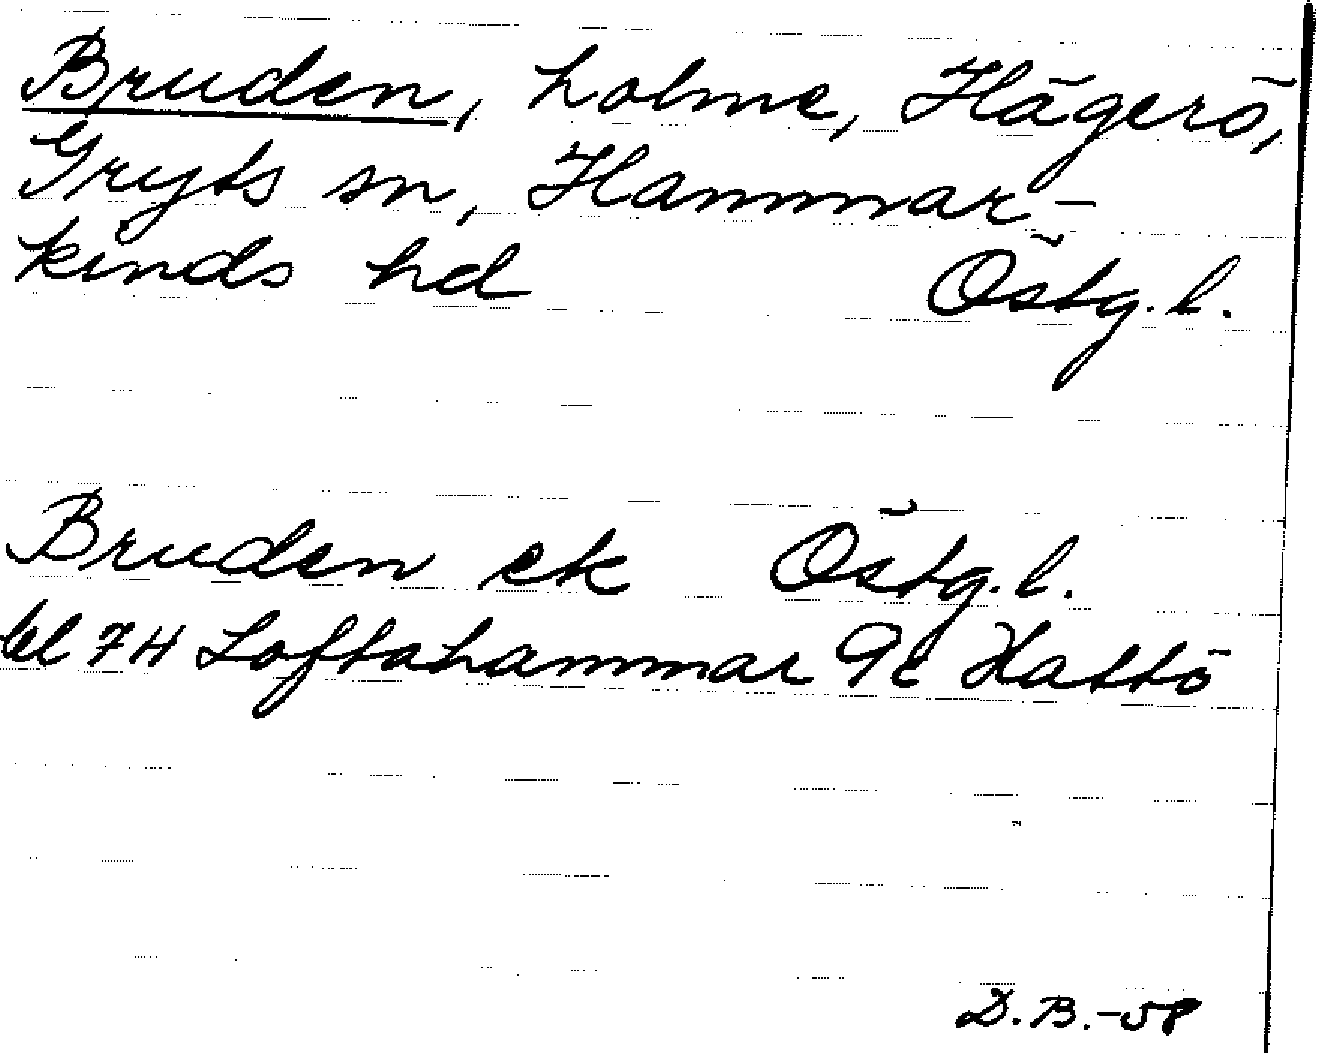 Bruden, holme, Hägerö,
Gryts sn, Hammar-
kinds hd Östg. l.
Bruden ek Östg. l.
bl 7H Loftahammar 9c Hattö
D.B.-58